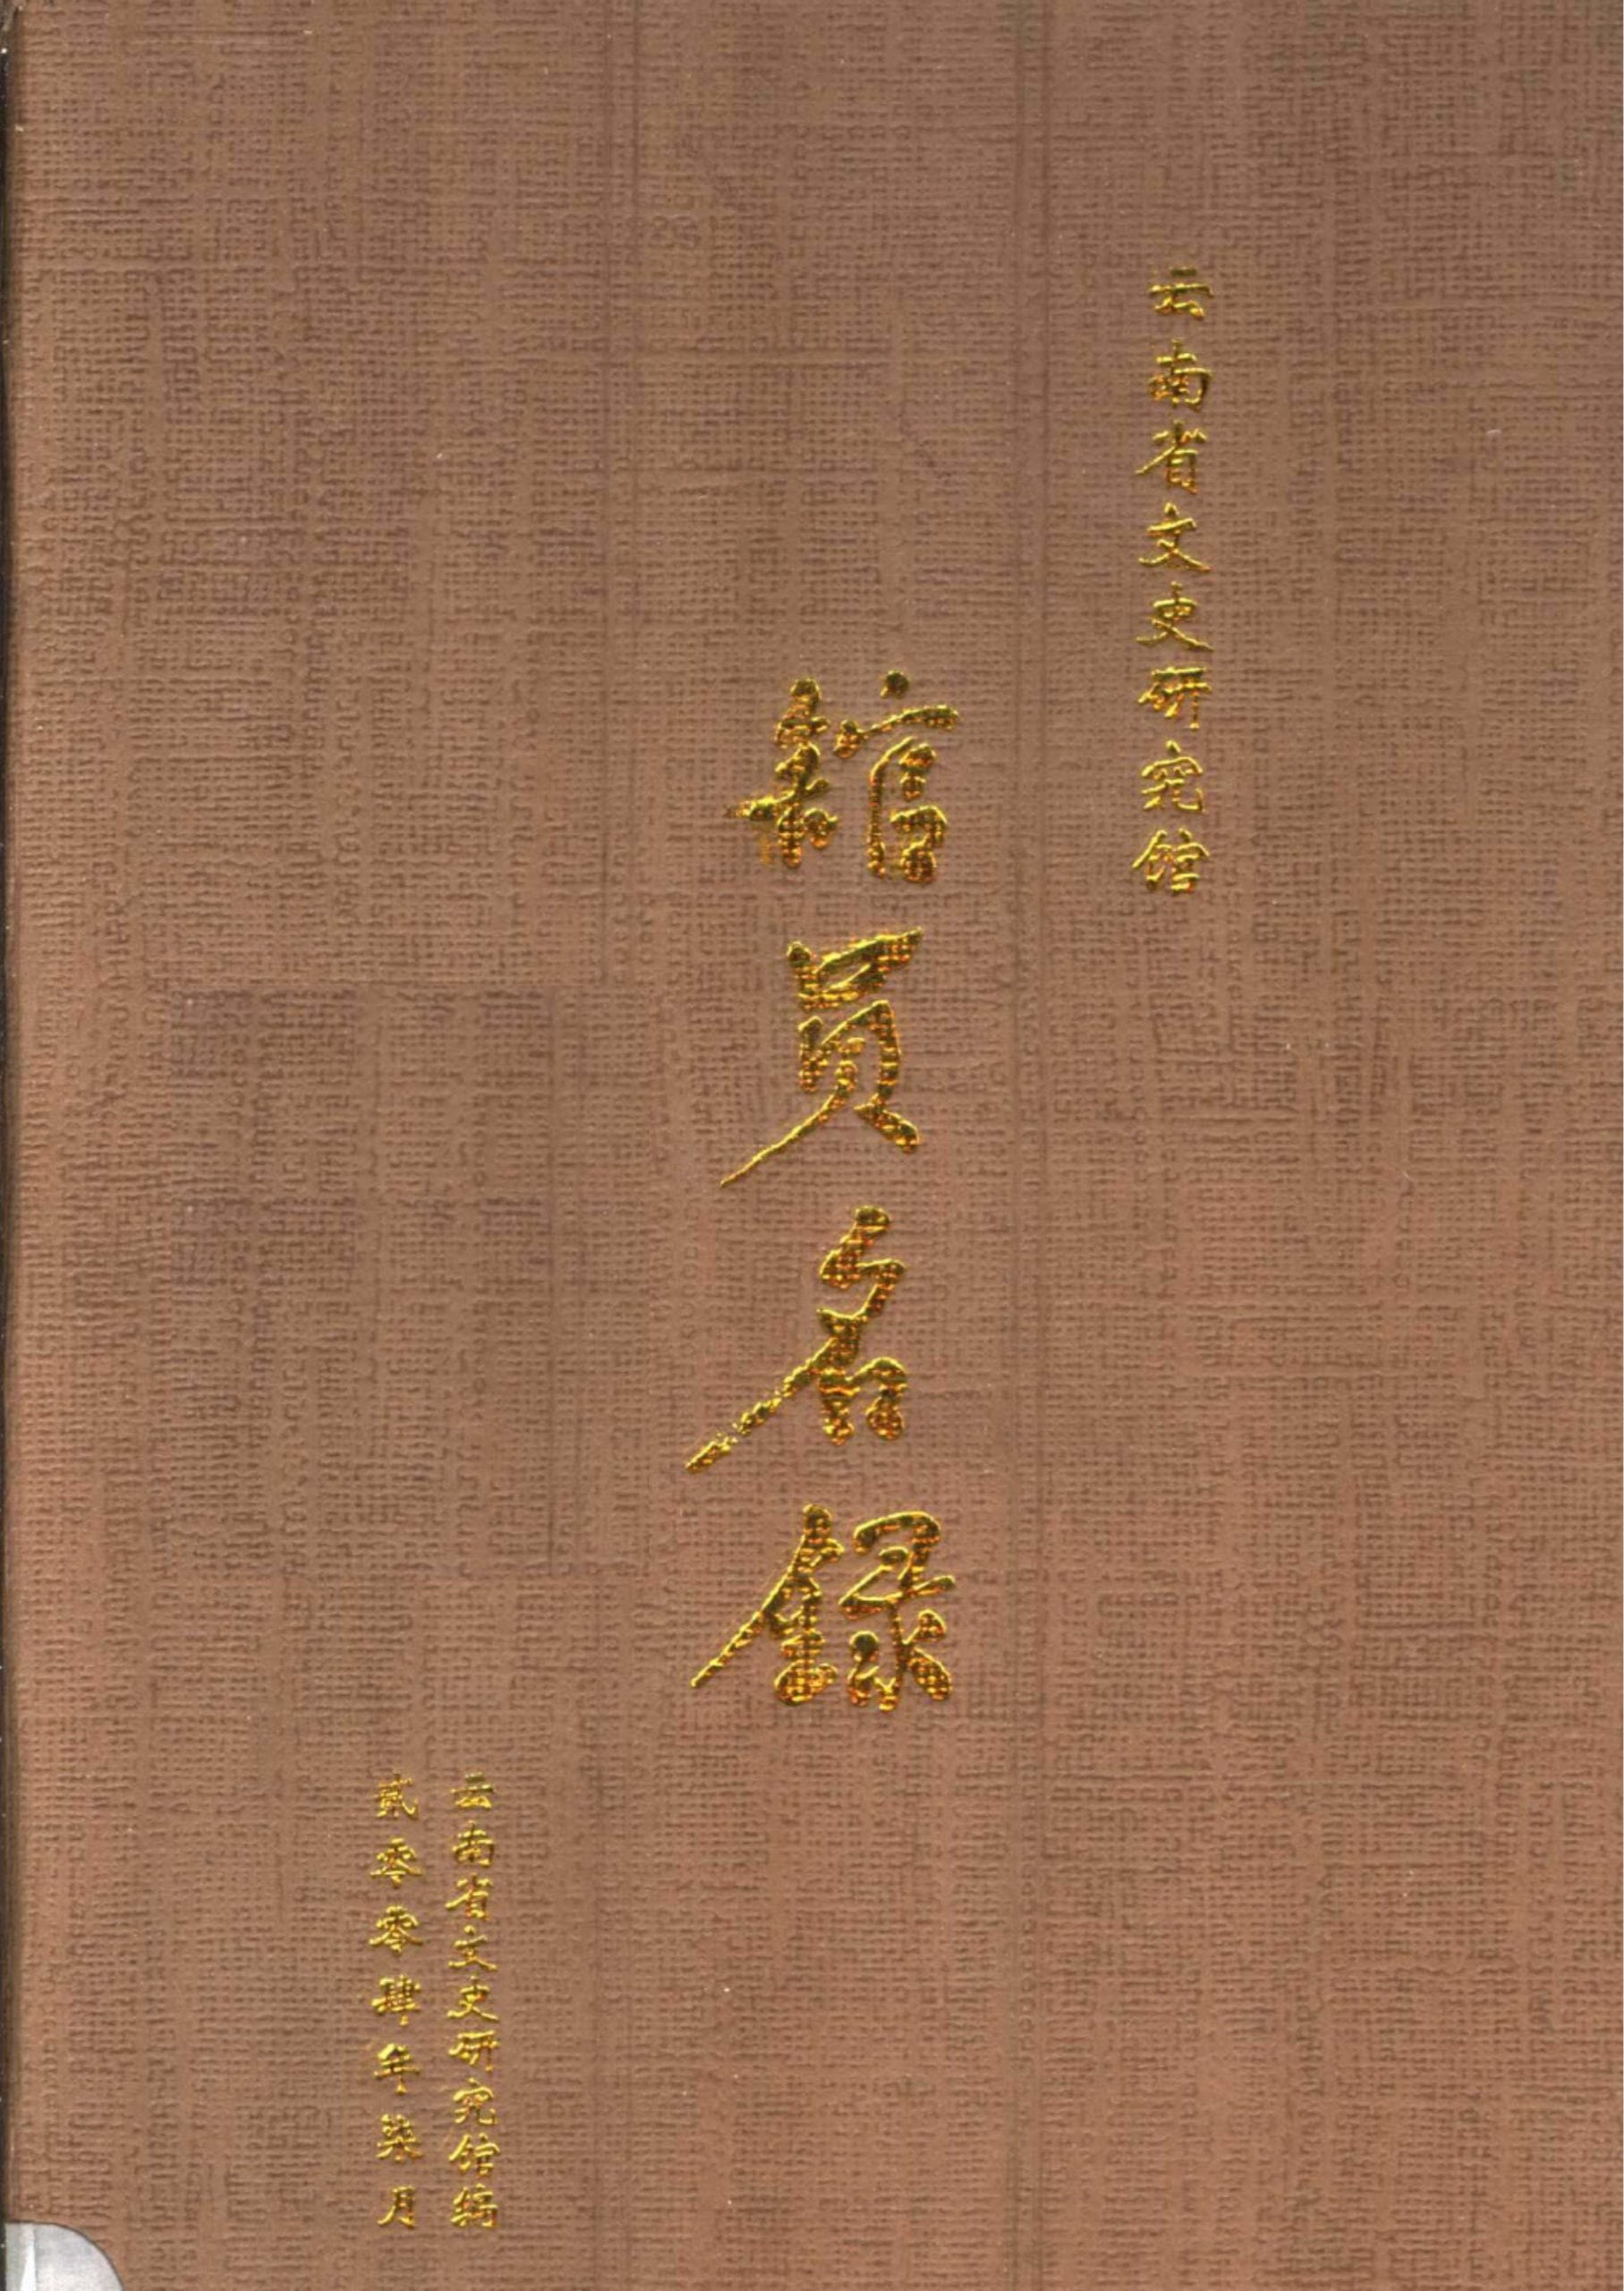 云南省文史研究馆
馆员名録
云南省文史研究馆编
贰零零肆年柒月